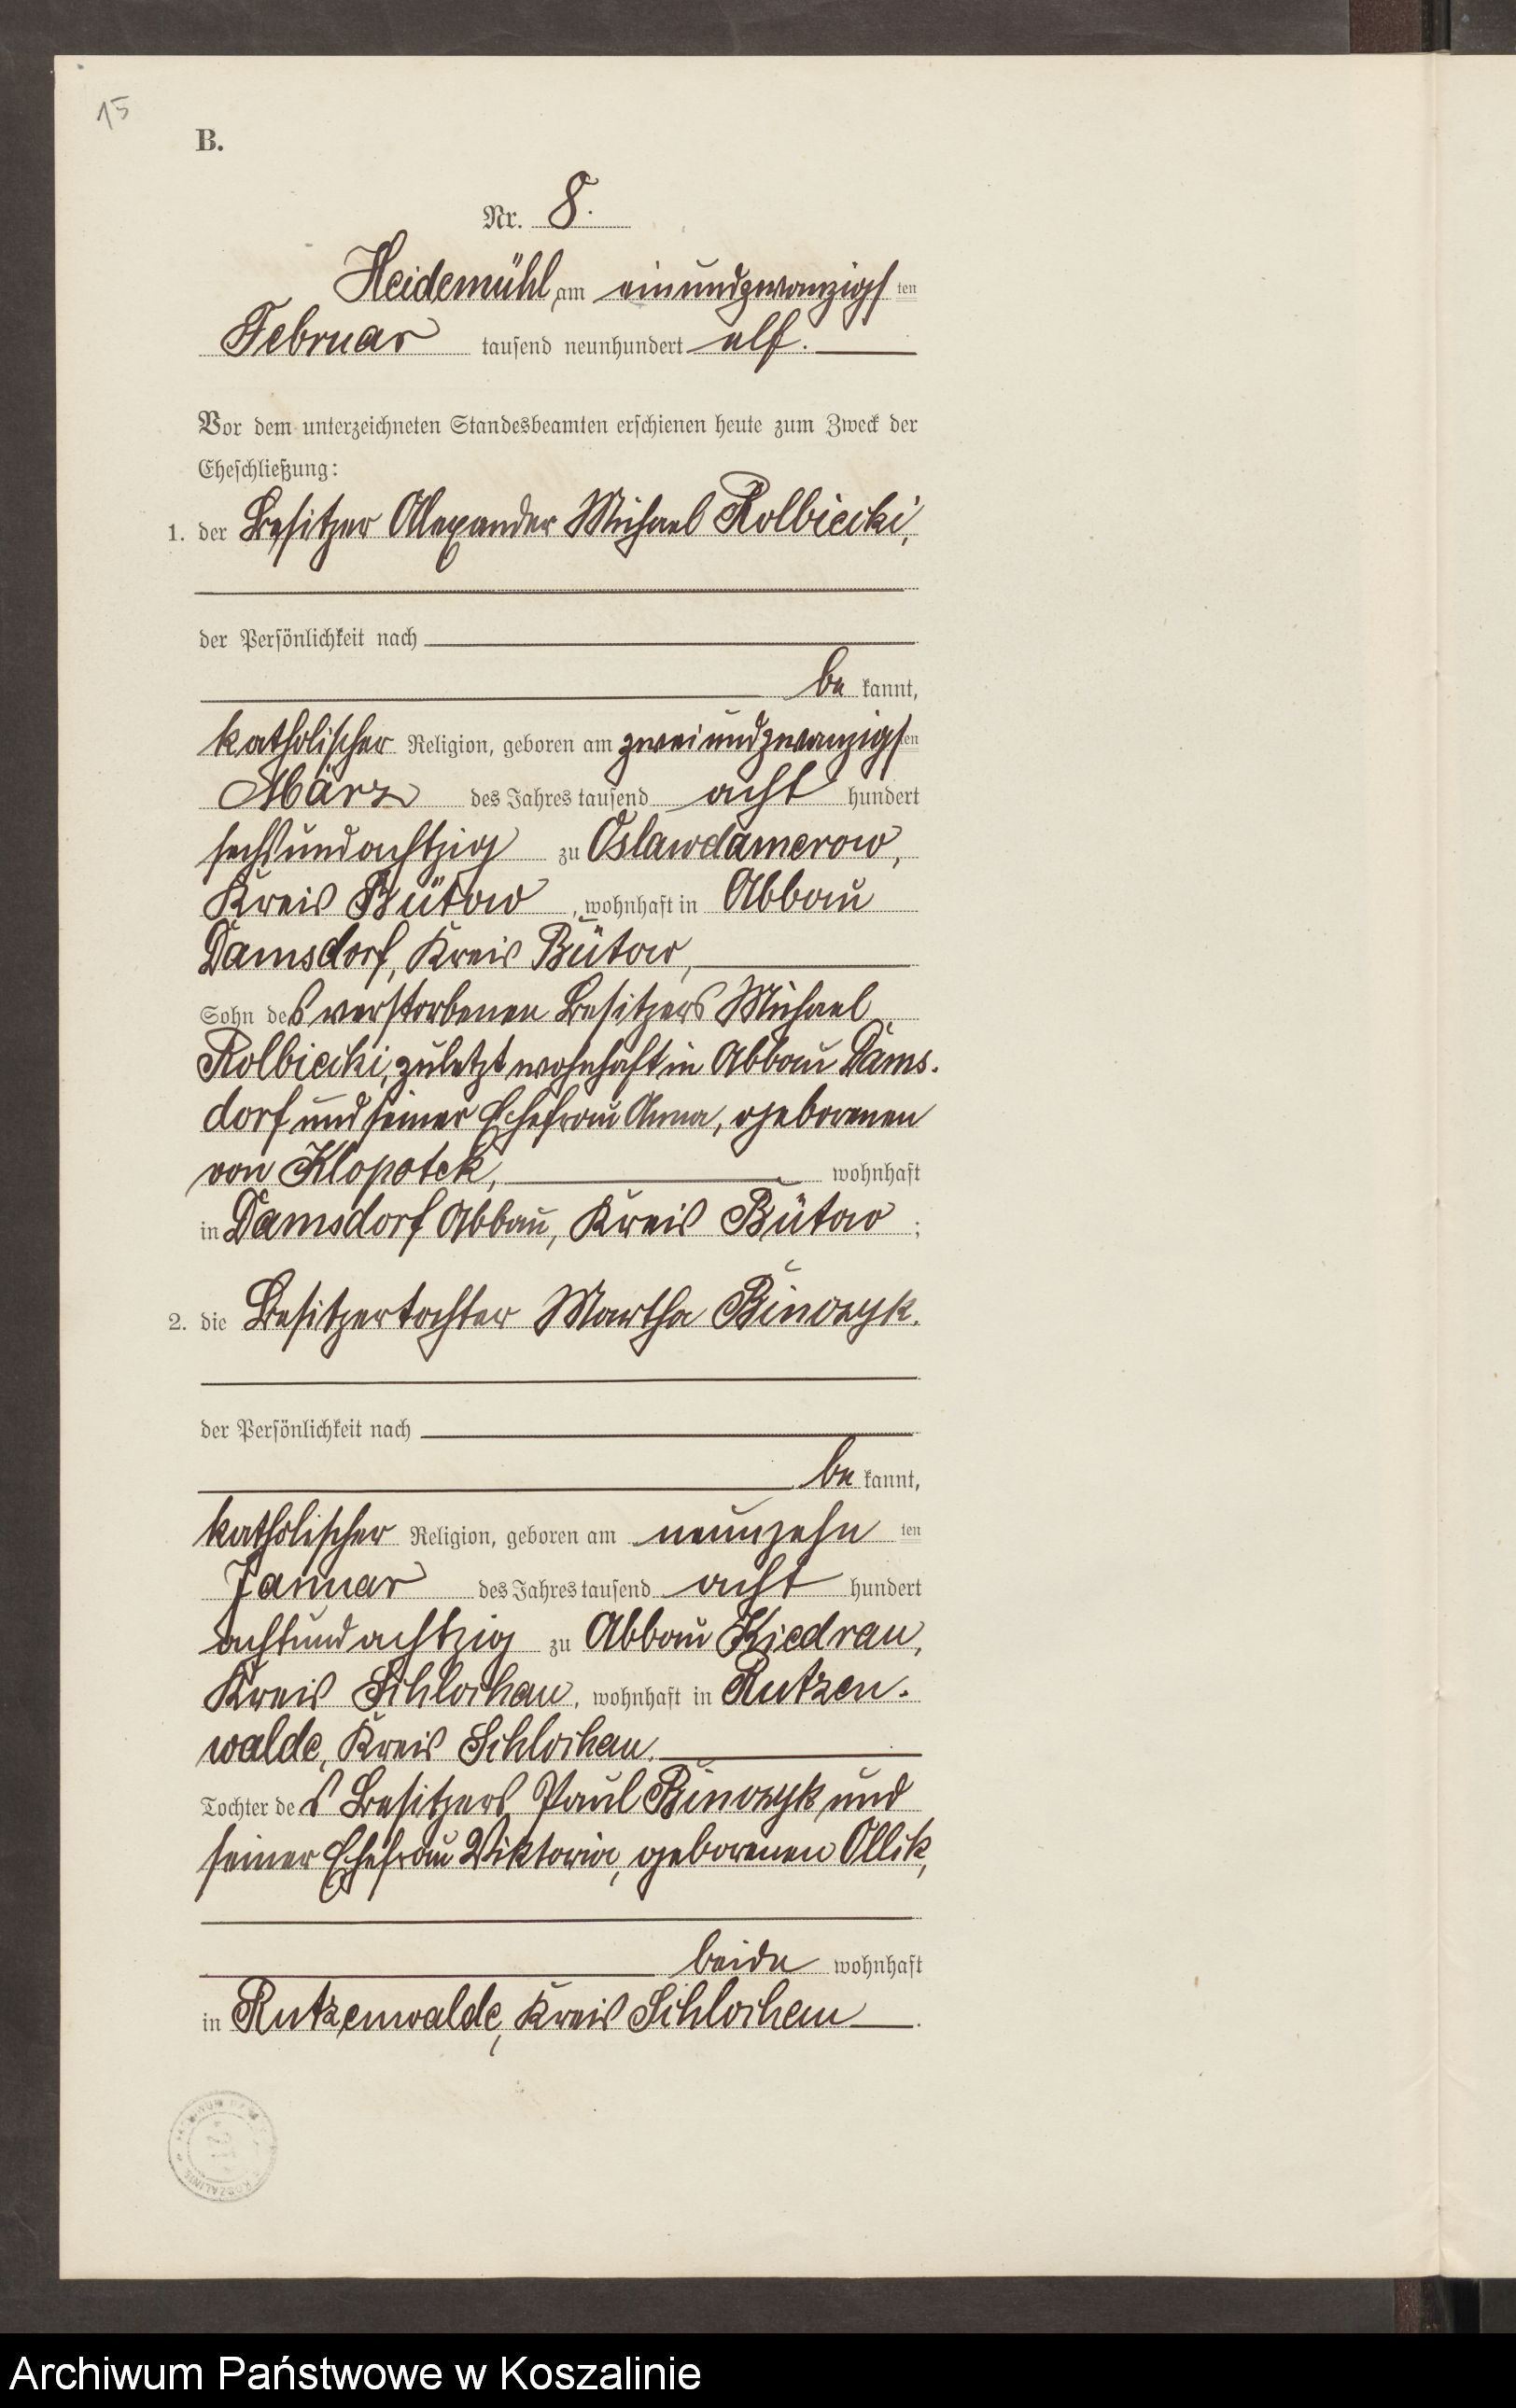 15
B.
Nr. 8.
Heidemühl, am einundzwanzigsten
Februar tausend neunhundert elf.
Vor dem unterzeichneten Standesbeamten erschienen heute zum Zweck der
Eheschließung:
1. der Besitzer Alexander Michael Rolbiecki,
der Persönlichkeit nach
be kannt,
katholischer Religion, geboren am zweiundzwanzigsten
März des Jahres tausend acht hundert
sechsundachtzig zu Oslawdamerow,
Kreis Bütow, wohnhaft in Abbau
Damsdorf, Kreis Bütow,
Sohn des verstorbenen Besitzers Michael
Rolbiecki, zuletzt wohnhaft in Abbau Dams-
dorf und seiner Ehefrau Anna, geborenen
von Klopotek, wohnhaft
in Damsdorf Abbau, Kreis Bütow;
2. die Besitzertochter Martha Binczyk.
der Persönlichkeit nach
be kannt,
katholischer Religion, geboren am neunzehn ten
Januar des Jahres tausend acht hundert
achtundachtzig zu Abbau Kiedrau,
Kreis Schlochau, wohnhaft in Rutzen-
walde, Kreis Schlochau.
Tochter des Besitzers Paul Binczyk und
seiner Ehefrau Viktoria, geborenen Ollik,
beide wohnhaft
in Rutzenwalde, Kreis Schlochau.
Archiwum Państwowe w Koszalinie